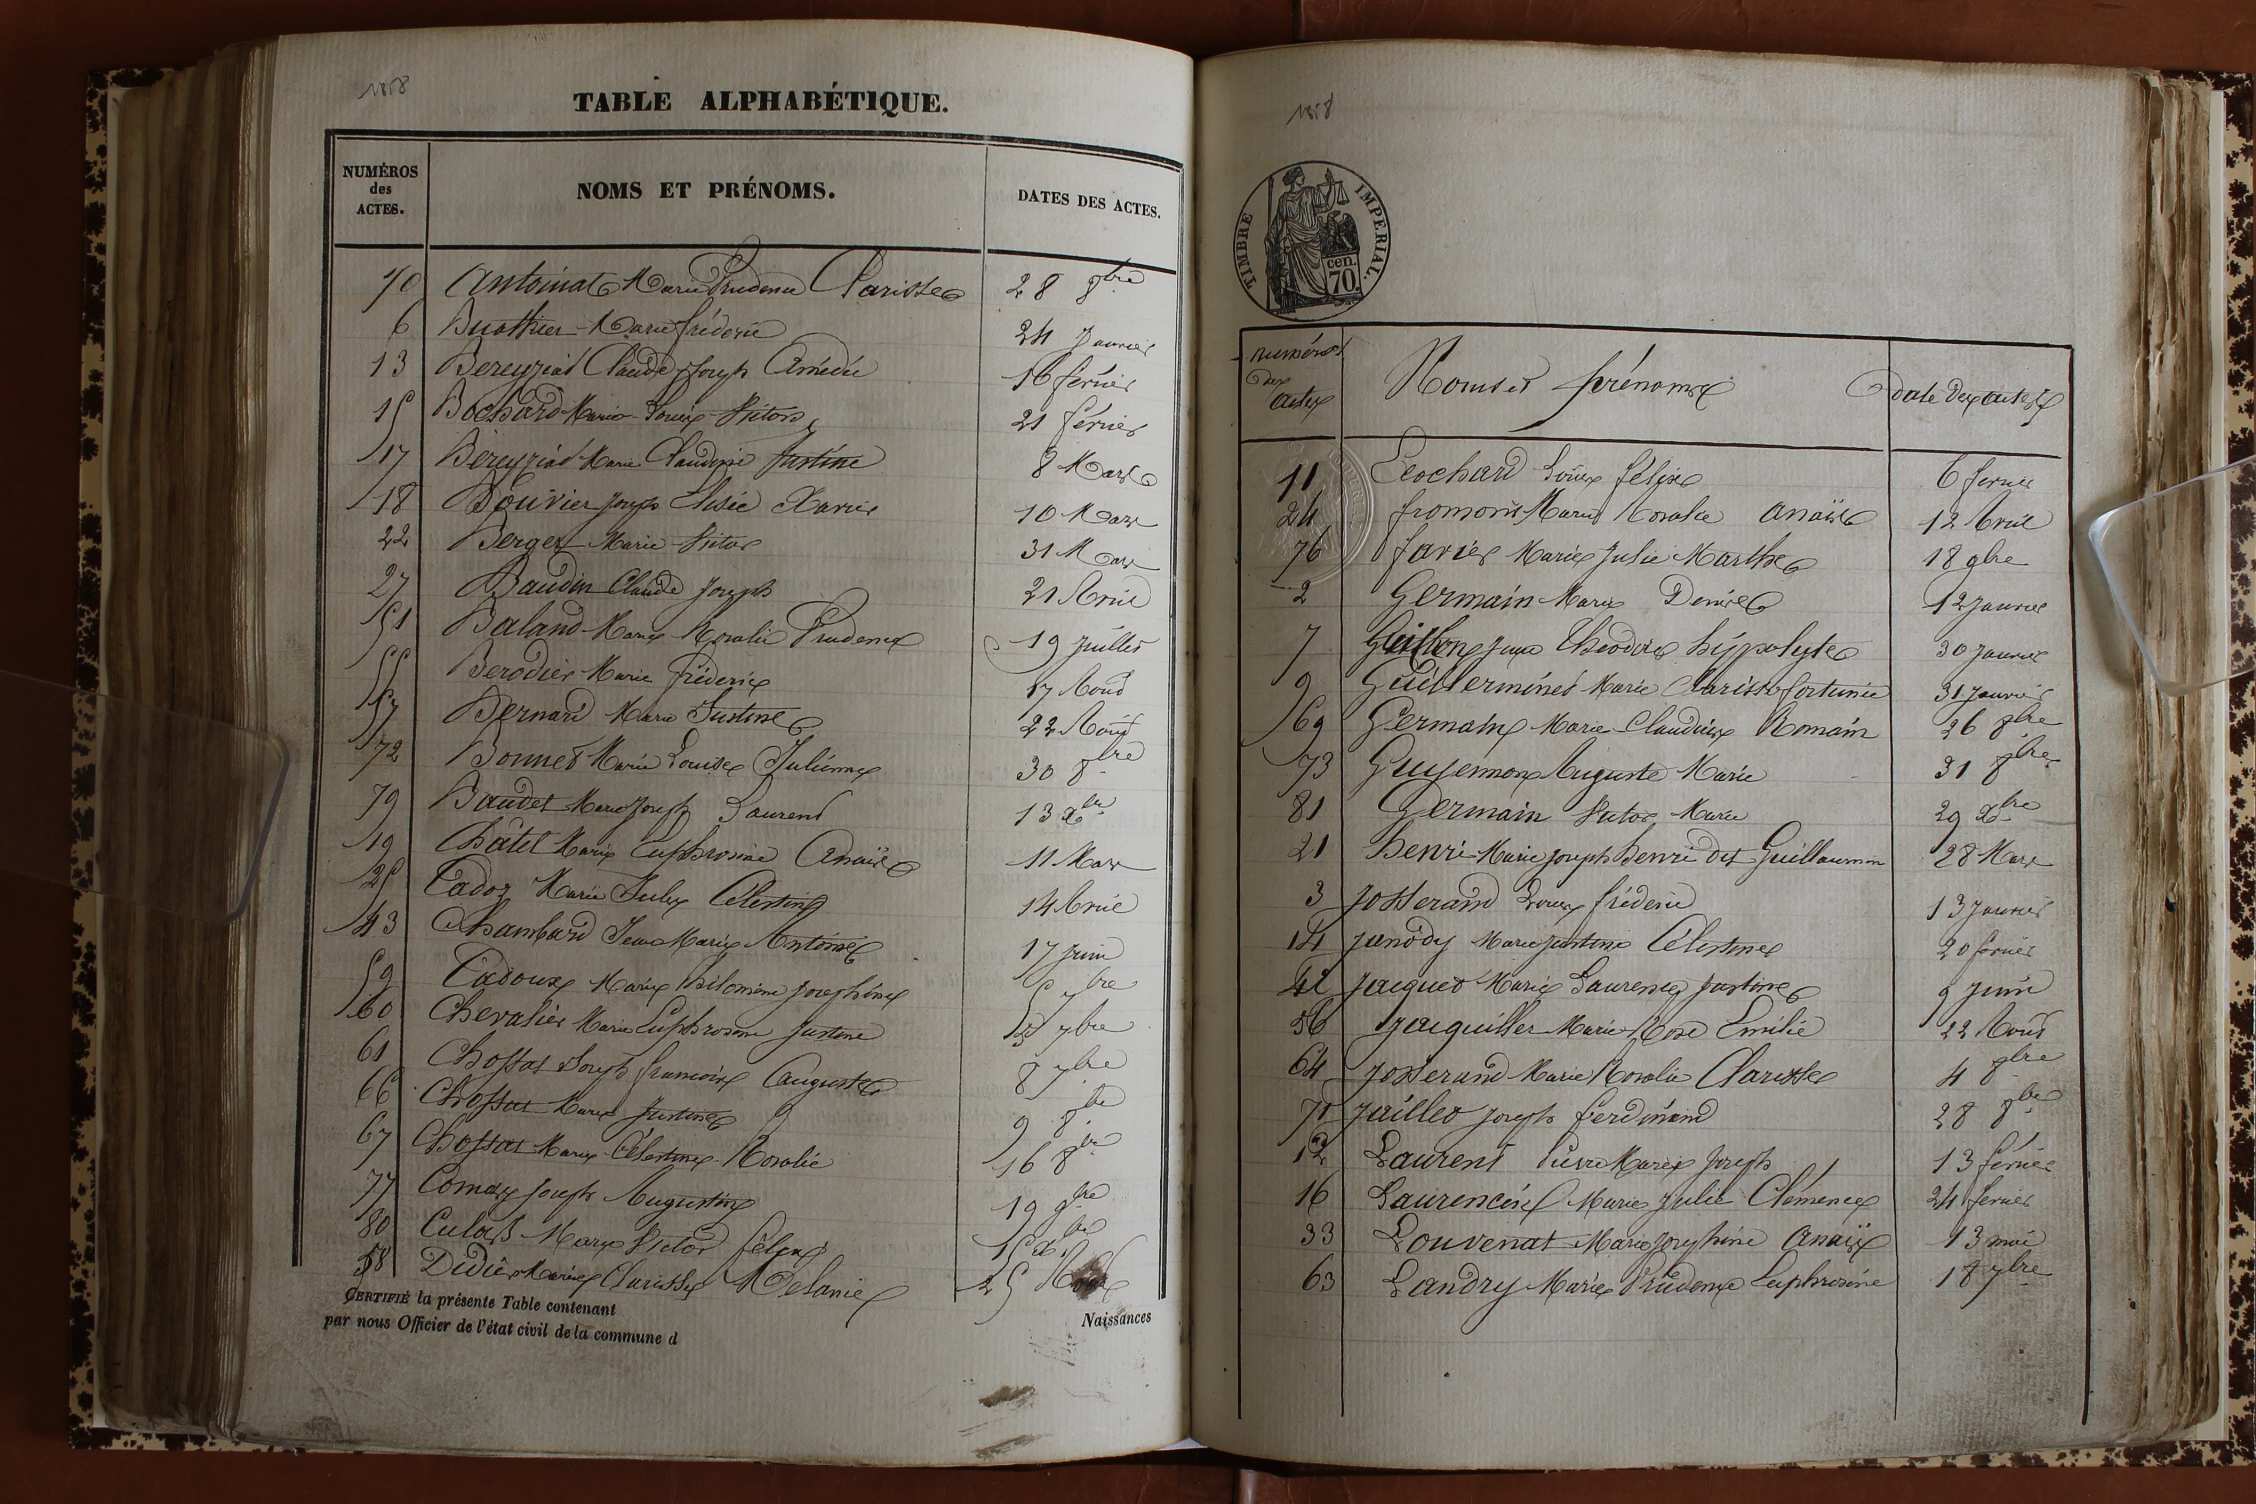 1858
TABLE ALPHABÉTIQUE.
NUMÉROS
des
ACTES.
NOMS ET PRÉNOMS.
DATES DES ACTES.
70 Antoinat Marie Prudence Clarisse 28 8bre
6 Buathier Marie frédéric 24 Janvier
13 Bereyziat Claude Joseph Amédée 16 février
15 Bochard Marie Louis Victor 21 février
17 Béreyziat Marie Claudine Justine 8 Mars
18 Bouvier Joseph Elisée Xavier 10 Mars
22 Berger Marie Victor 31 Mars
27 Baudin Claude Joseph 21 Avril
51 Baland Marie Rosalie Prudence 19 Juillet
55 Berodier Marie fréderic 17 Aout
57 Bernard Marie Justine 22 Aout
72 Bonnet Marie Louise Julienne 30 8bre
79 Baudet Marie Joseph Laurent 13 Xbre
19 Châtel Marie Euphrosine Anaïs 11 Mars
25 Cadoz Marie Célestin 14 Avril
43 Chambard Jean Marie Antoine 17 Juin
59 Cadoux Marie Philomène Josephine 5 7bre
60 Chevalier Marie Euphrosine Justine 7bre
61 Chossat Joseph francois Auguste 8 7bre
66 Chossat Marie Justine 9 8bre
67 Chossat Marie Célestine Rosalie 16 8bre
77 Comas Joseph Augustin 19 9bre
80 Culas Marie Victor félix 15 Xbre
58 Didier Marie Clarisse Mélanie 25
CERTIFIÉ la présente Table contenant
Naissances
par nous Officier de l'état civil de la commune d
1858
TIMBRE IMPERIAL.
cen.
70.
numéros
des
actes
Noms et prénoms
date des actes
11 Léochard Louis félix 6 fevrier
24 fromont Marie Rosalie Anaïs 12 Avril
76 favier Marie Julie Marthe 18 9bre
2 Germain Marie Denise 12 Janvier
7 Guillon Théodore hyppolyte 30 Janvier
9 Guillerminet Marie Clarisse fortunée 31 Janvier
69 Germain Marie Claudine Romain 26 8bre
73 Guyennon Auguste Marie 31 8bre
81 Germain Victor Marie 29 Xbre
21 henri Marie Joseph henri dit Guillaumon 28 Mars
3 Josserand Louis fréderic 13 Janvier
14 Janody Marie Justine Célestine 20 fevrier
42 Jacquet Marie Laurence Justine 9 Juin
56 Jacquiller Marie Rose Emilie 22 Aout
64 Josserand Marie Rosalie Clarisse 4 8bre
71 Jaillet Joseph ferdinand 28 8bre
12 Laurent Pierre Marie Joseph 13 février
16 Laurencin Marie Julie Clémence 24 fevrier
33 Louvenat Marie Josephine Anaïs 13 mai
63 Landry Marie Prudence Euphrosine 18 7bre